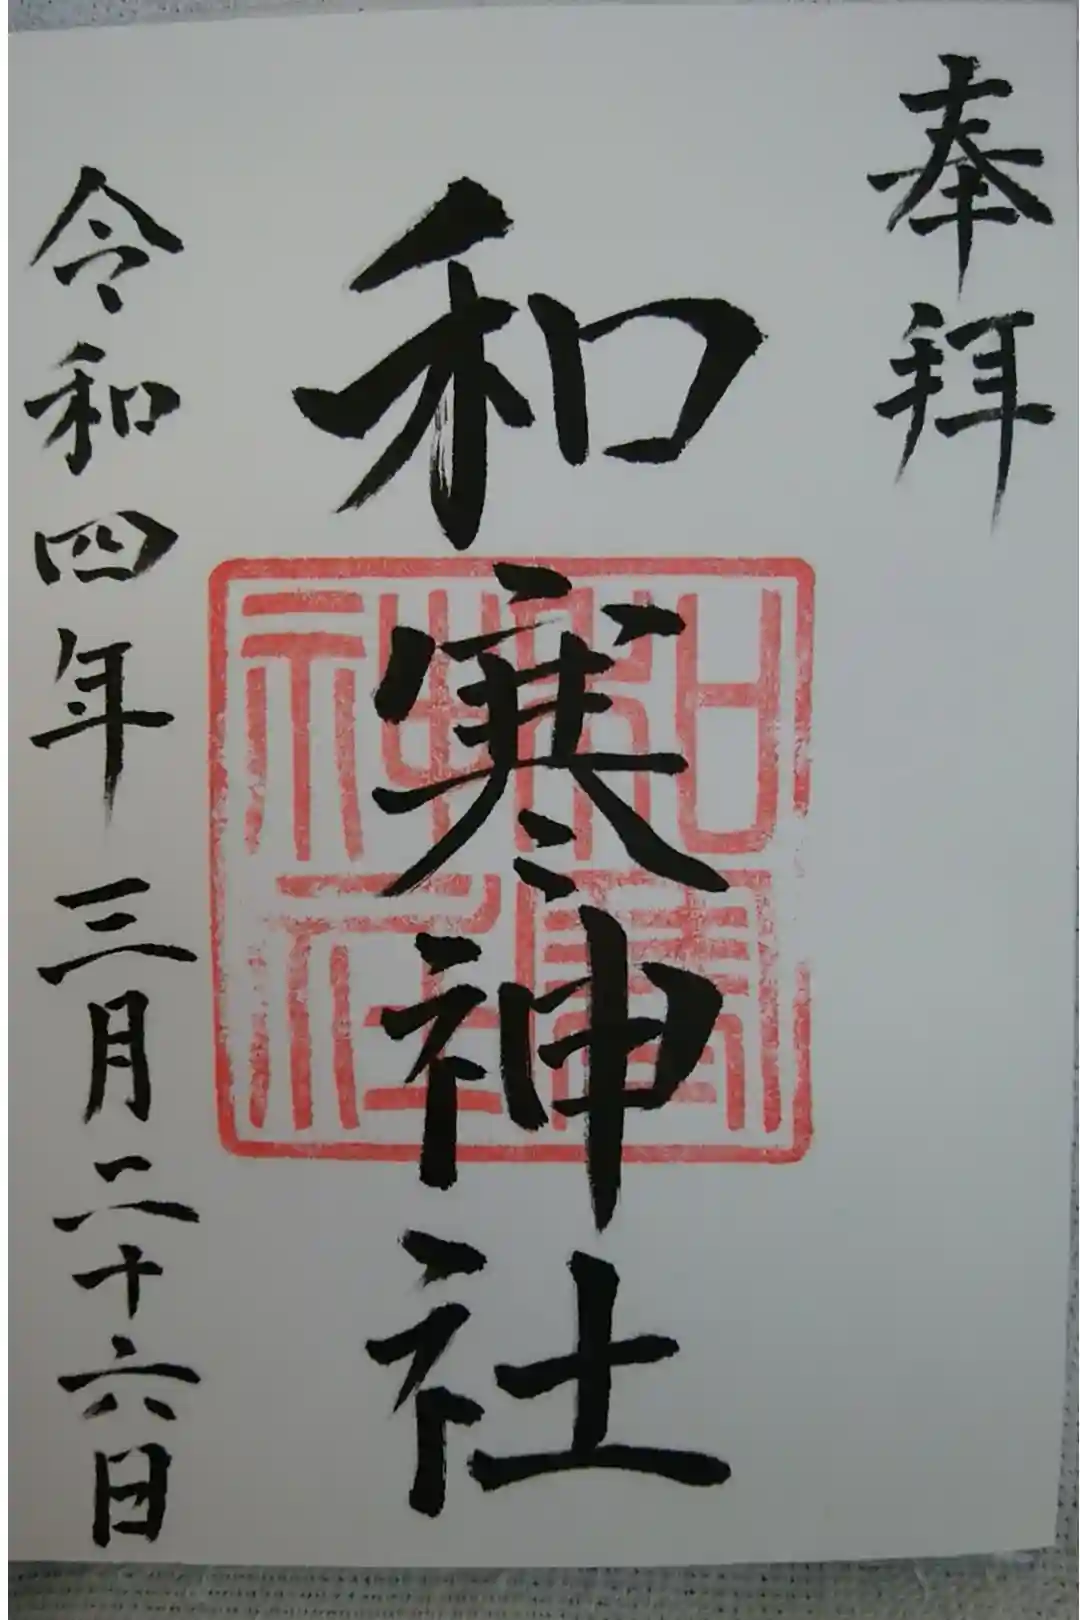 奉拜
和寒神社
和寒神社
令和四年三月二十六日